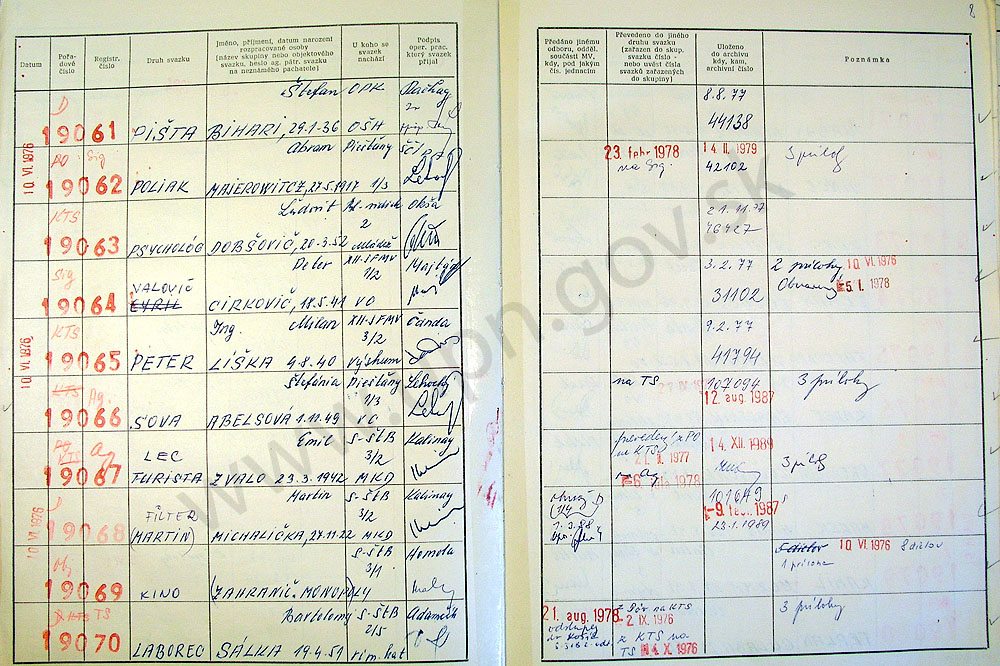 8
Datum
Pořa-
dové
číslo
Registr.
číslo
Druh svazku
Jméno, příjmení, datum narození
rozpracované osoby
(název skupiny nebo objektového
svazku, heslo ag. pátr. svazku
na neznámého pachatele)
U koho se
svazek
nachází
Podpis
oper. prac.
který svazek
přijal
Předáno jinému
odboru, odděl.
součásti MV,
kdy, pod jakým
čís. jednacím
Převedeno do jiného
druhu svazku
(zařazen do skup.
svazku číslo -
nebo uvést čísla
svazků zařazených
do skupiny)
Uloženo
do archivu
kdy, kam,
archivní číslo
Poznámka
Štefan OPK
8.8.77
19061 PIŠTA BIHARI, 29.1.36 OŠH
44138
10. VI. 1976
Abram Piešťany
23. febr 1978 14. II. 1979 3 príloh
19062 POLIAK MAIEROWITCZ, 27.5.1917 1/3
na Sig. 42102
KTS Ľudovít
21.11.77
2
19063 PSYCHOLÓG DOBŠOVIČ, 20.3.52 Mládež
46427
Sig Peter XII-SFMV
3.2.77 2 prílohy 10. VI. 1976
VALOVIČ 1/2
5. I. 1978
19064 CYRIL CIRKOVIČ, 18.5.41 VO
31102
KTS Ing. Milan XII-SFMV Čanda
9.2.77
3/2
19065 PETER LÍŠKA 4.8.40 výskum
41794
10. VI. 1976
KTS Ag. Štefánia Piešťany
na TS 107094 3 prílohy
1/3
12. aug. 1987
19066 SOVA ABELSOVÁ 1.11.49
Emil S-ŠtB Kalinay
14. XII. 1989
LEC 3/2
1977 3 príloh
19067 TURISTA ZVALO 23.3.1942 MKD
1978
D Martin S-ŠtB Kalinay
101649
FILTER 3/2
9. febr. 1987
19068 (MARTIN) MICHALIČKA, 27.11.22 MKD
23.1.1989
10. VI. 1976
S-ŠtB Homola
5 dielov 10. VI. 1976 8 dielov
3/1
1 príloha
19069 KINO (ZAHRANIČ. MONOPOLY
KTS TS Bartolomej S-ŠtB Adamech
21. aug. 1978 na KTS 3 prílohy
2/5
2. IX. 1976
19070 LABOREC SÁLKA 19.4.51
z KTS na
TS 4. X. 1976
www.upn.gov.sk